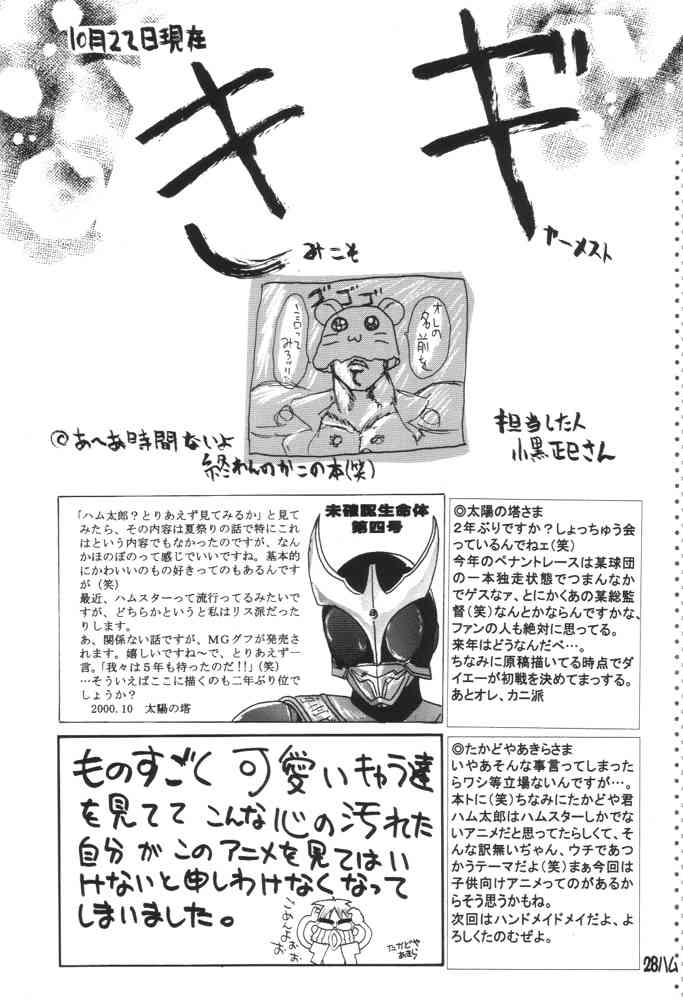 10月22日現在
ギ
ャーメスト
き
みこそ
ゴゴゴゴ
オレの
名前を
言って
みろッ!!
担当した人
小黒正巳さん
◎あ〜あ時間ないよ
終わんのかこの本(笑)
「ハム太郎?とりあえず見てみるか」と見て
みたら、その内容は夏祭りの話で特にこれ
はという内容でもなかったのですが、なん
かほのぼのって感じでいいですね。基本的
にかわいいのもの好きってのもあるんです
が(笑)
最近、ハムスターって流行ってるみたいで
すが、どちらかというと私はリス派だった
りします。
あ、関係ない話ですが、MGグフが発売さ
れます。嬉しいですね〜で、とりあえず一
言。「我々は5年も待ったのだ!!」(笑)
…そういえばここに描くのも二年ぶり位で
しょうか?
2000.10 太陽の塔
未確認生命体
第四号
◎太陽の塔さま
2年ぶりですか?しょっちゅう会
っているんでねェ(笑)
今年のペナントレースは某球団
の一本独走状態でつまんなか
でゲスなァ、とにかくあの某総監
督(笑)なんとかならんですかな、
ファンの人も絶対に思ってる。
来年はどうなんだべ…。
ちなみに原稿描いてる時点でダ
イエーが初戦を決めてまっする。
あとオレ、カニ派
ものすごく可愛いきゅう達
を見ててこんな心の汚れた
自分がこのアニメを見てはい
けないと申しわけなくなって
しまいました。
ごめんよぉぉぉ
たかどや
あきら
◎たかどやあきらさま
いやあそんな事言ってしまった
らワシ等立場ないんですが…。
本トに(笑)ちなみにたかどや君
ハム太郎はハムスターしかでな
いアニメだと思ってたらしくて、そ
んな訳無いぢゃん、ウチであつ
かうテーマだよ(笑)まぁ今回は
子供向けアニメってのがあるか
らそう思うかもね。
次回はハンドメイドメイだよ、よ
ろしくたのむぜよ。
28ハム